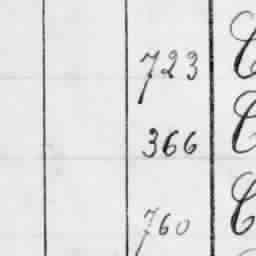 723 C
366 C
760 C